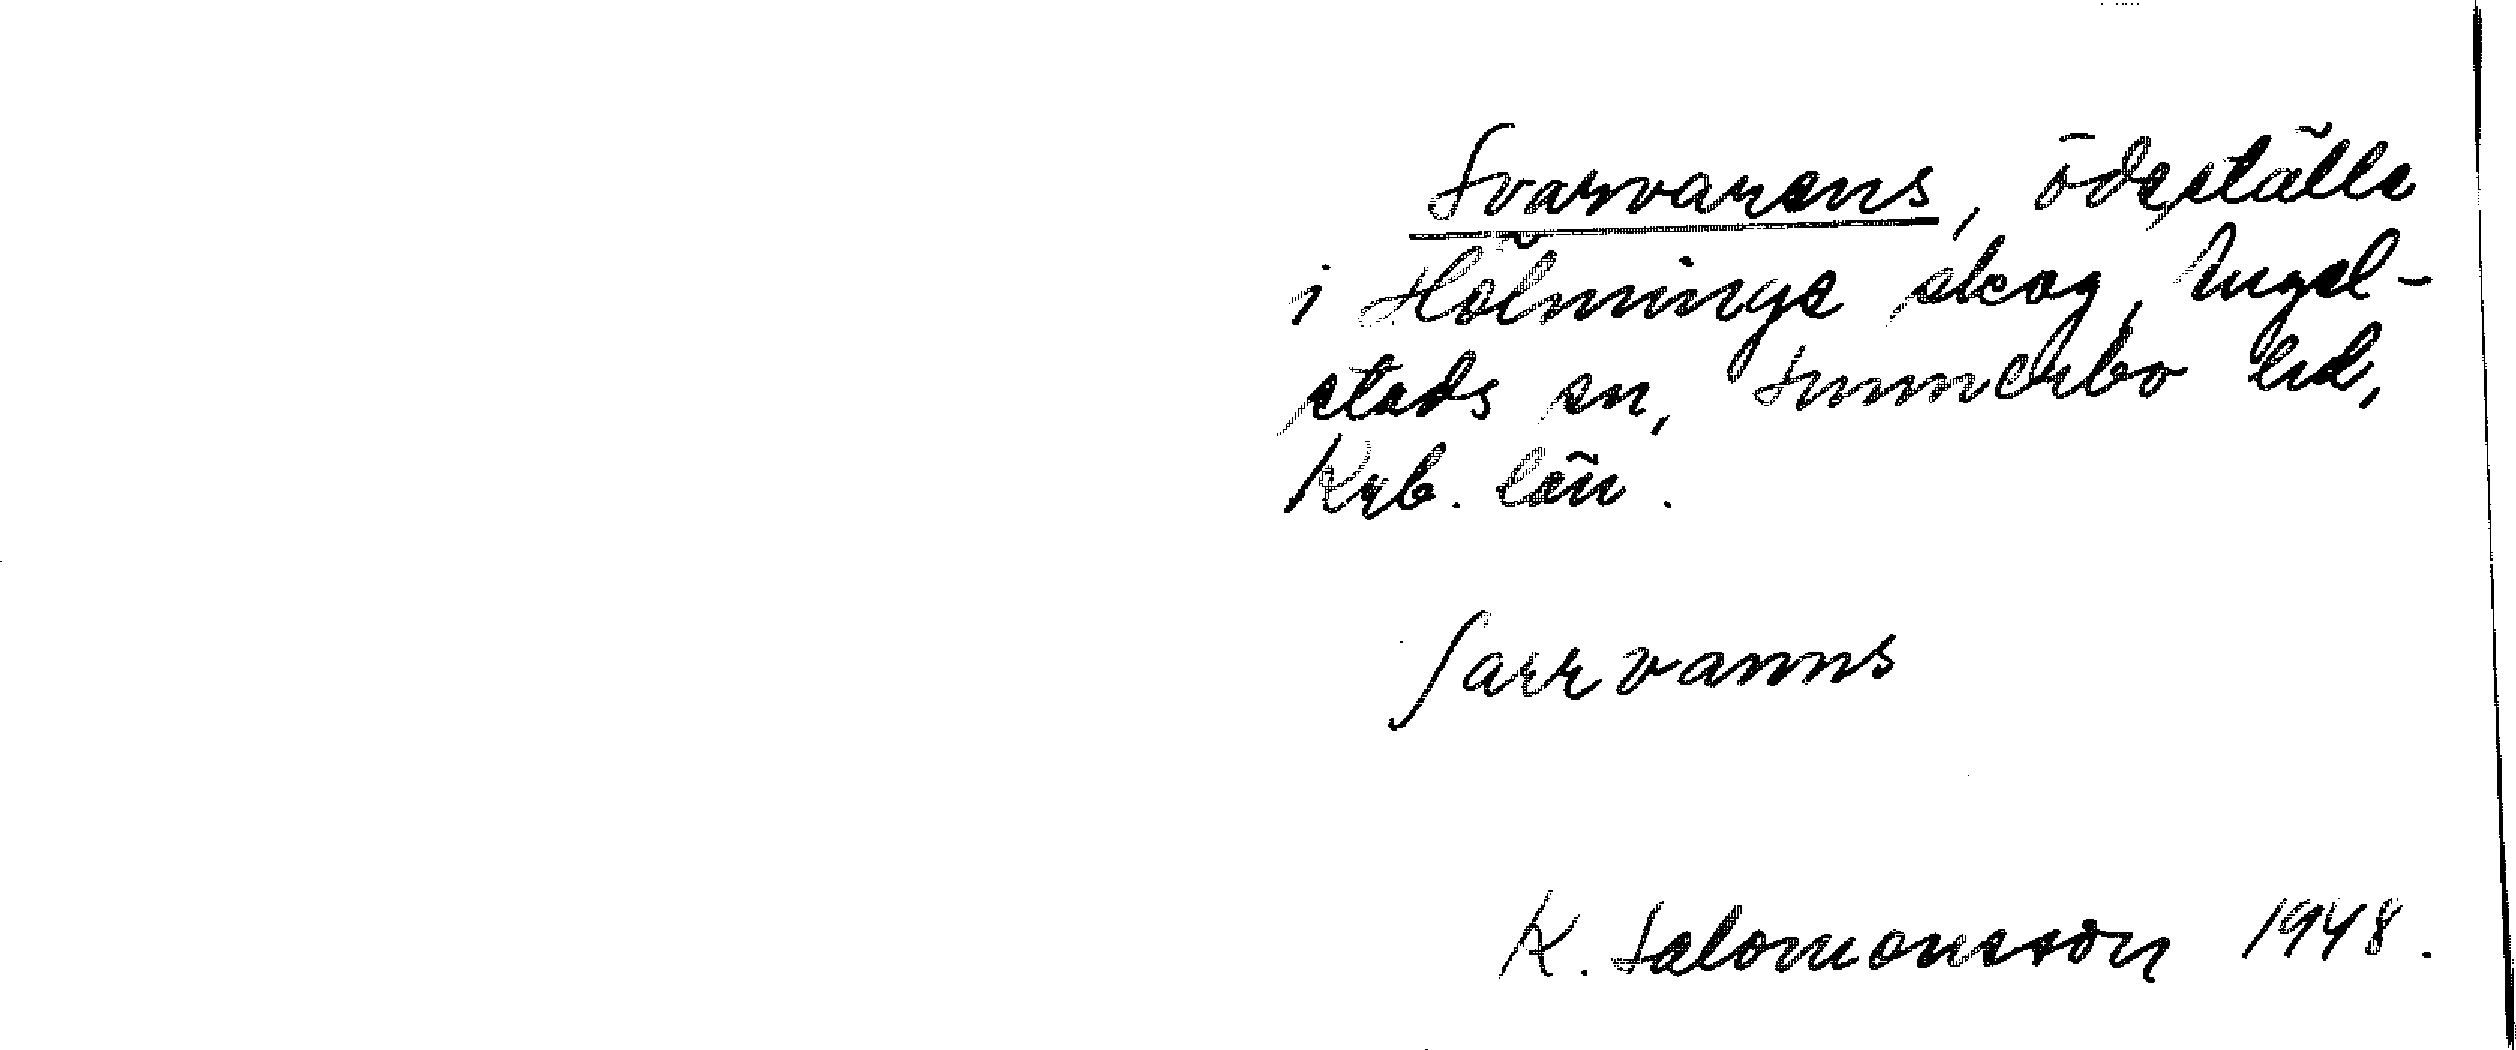 Svarvarens, ödeställe
i Hölminge skog, Angel-
stads sn, Sunnerbo hd,
Krb. län.
Sarrvanns
K. Salomonsson 1948.